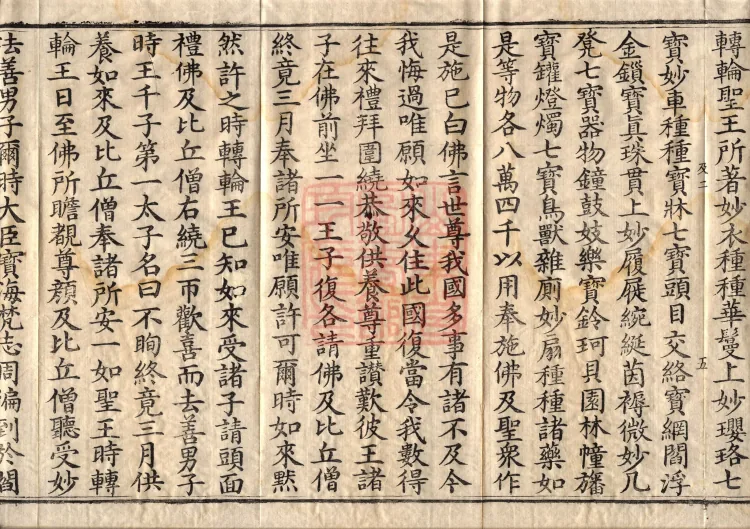 轉輪聖王所著妙衣種種華鬘上妙瓔珞七
寶妙車種種寶牀七寶頭目交絡寶網閻浮
金鎖寶真珠貫上妙履屣綩綖茵褥微妙几
凳七寶器物鐘鼓妓樂寶鈴珂貝園林幢旛
寶鑵燈燭七寶鳥獸雜廁妙扇種種諸藥如
是等物各八萬四千以用奉施佛及聖衆作
是施已白佛言世尊我國多事有諸不及今
我悔過唯願如來久住此國復當令我數得
往來禮拜圍繞恭敬供養尊重讃歎彼王諸
子在佛前坐一一王子復各請佛及比丘僧
終竟三月奉諸所安唯願許可爾時如來默
然許之時轉輪王已知如來受諸子請頭面
禮佛及比丘僧右繞三帀歡喜而去善男子
時王千子第一太子名曰不眴終竟三月供
養如來及比丘僧奉諸所安一如聖王時轉
輪王日至佛所瞻覩尊顔及比丘僧聽受妙
法善男子爾時大臣寶海梵志周徧到於閻
五